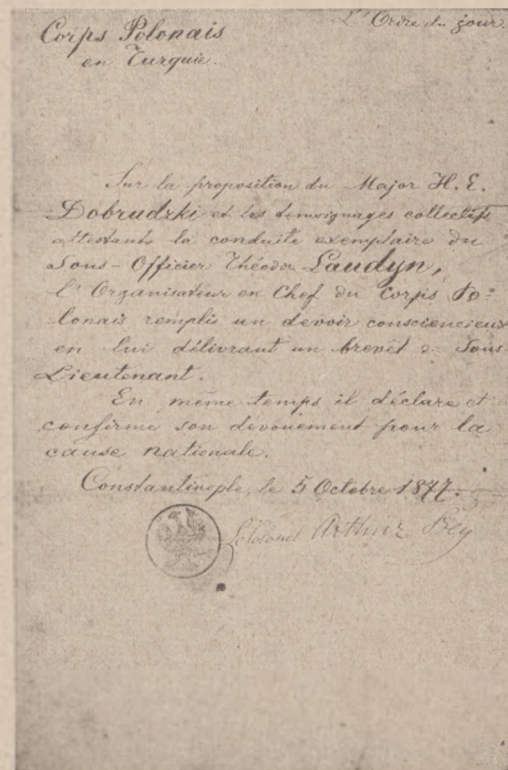 Corps Polonais
en Turquie.
L'Ordre du jour.
Sur la proposition du Major H. E.
Dobrudzki et les temoignages collectifs
attestants la conduite exemplaire du
Sous-Officier Théodor Laudyn,
l'Organisateur en Chef du Corps Po=
lonais remplis un devoir consciencieux
en lui délivrant un brevet de Sous-
Lieutenant.
En même temps il déclare et
confirme son devouement pour la
cause nationale.
Constantinople, le 5 Octobre 1877.
Colonel Arthur Bey